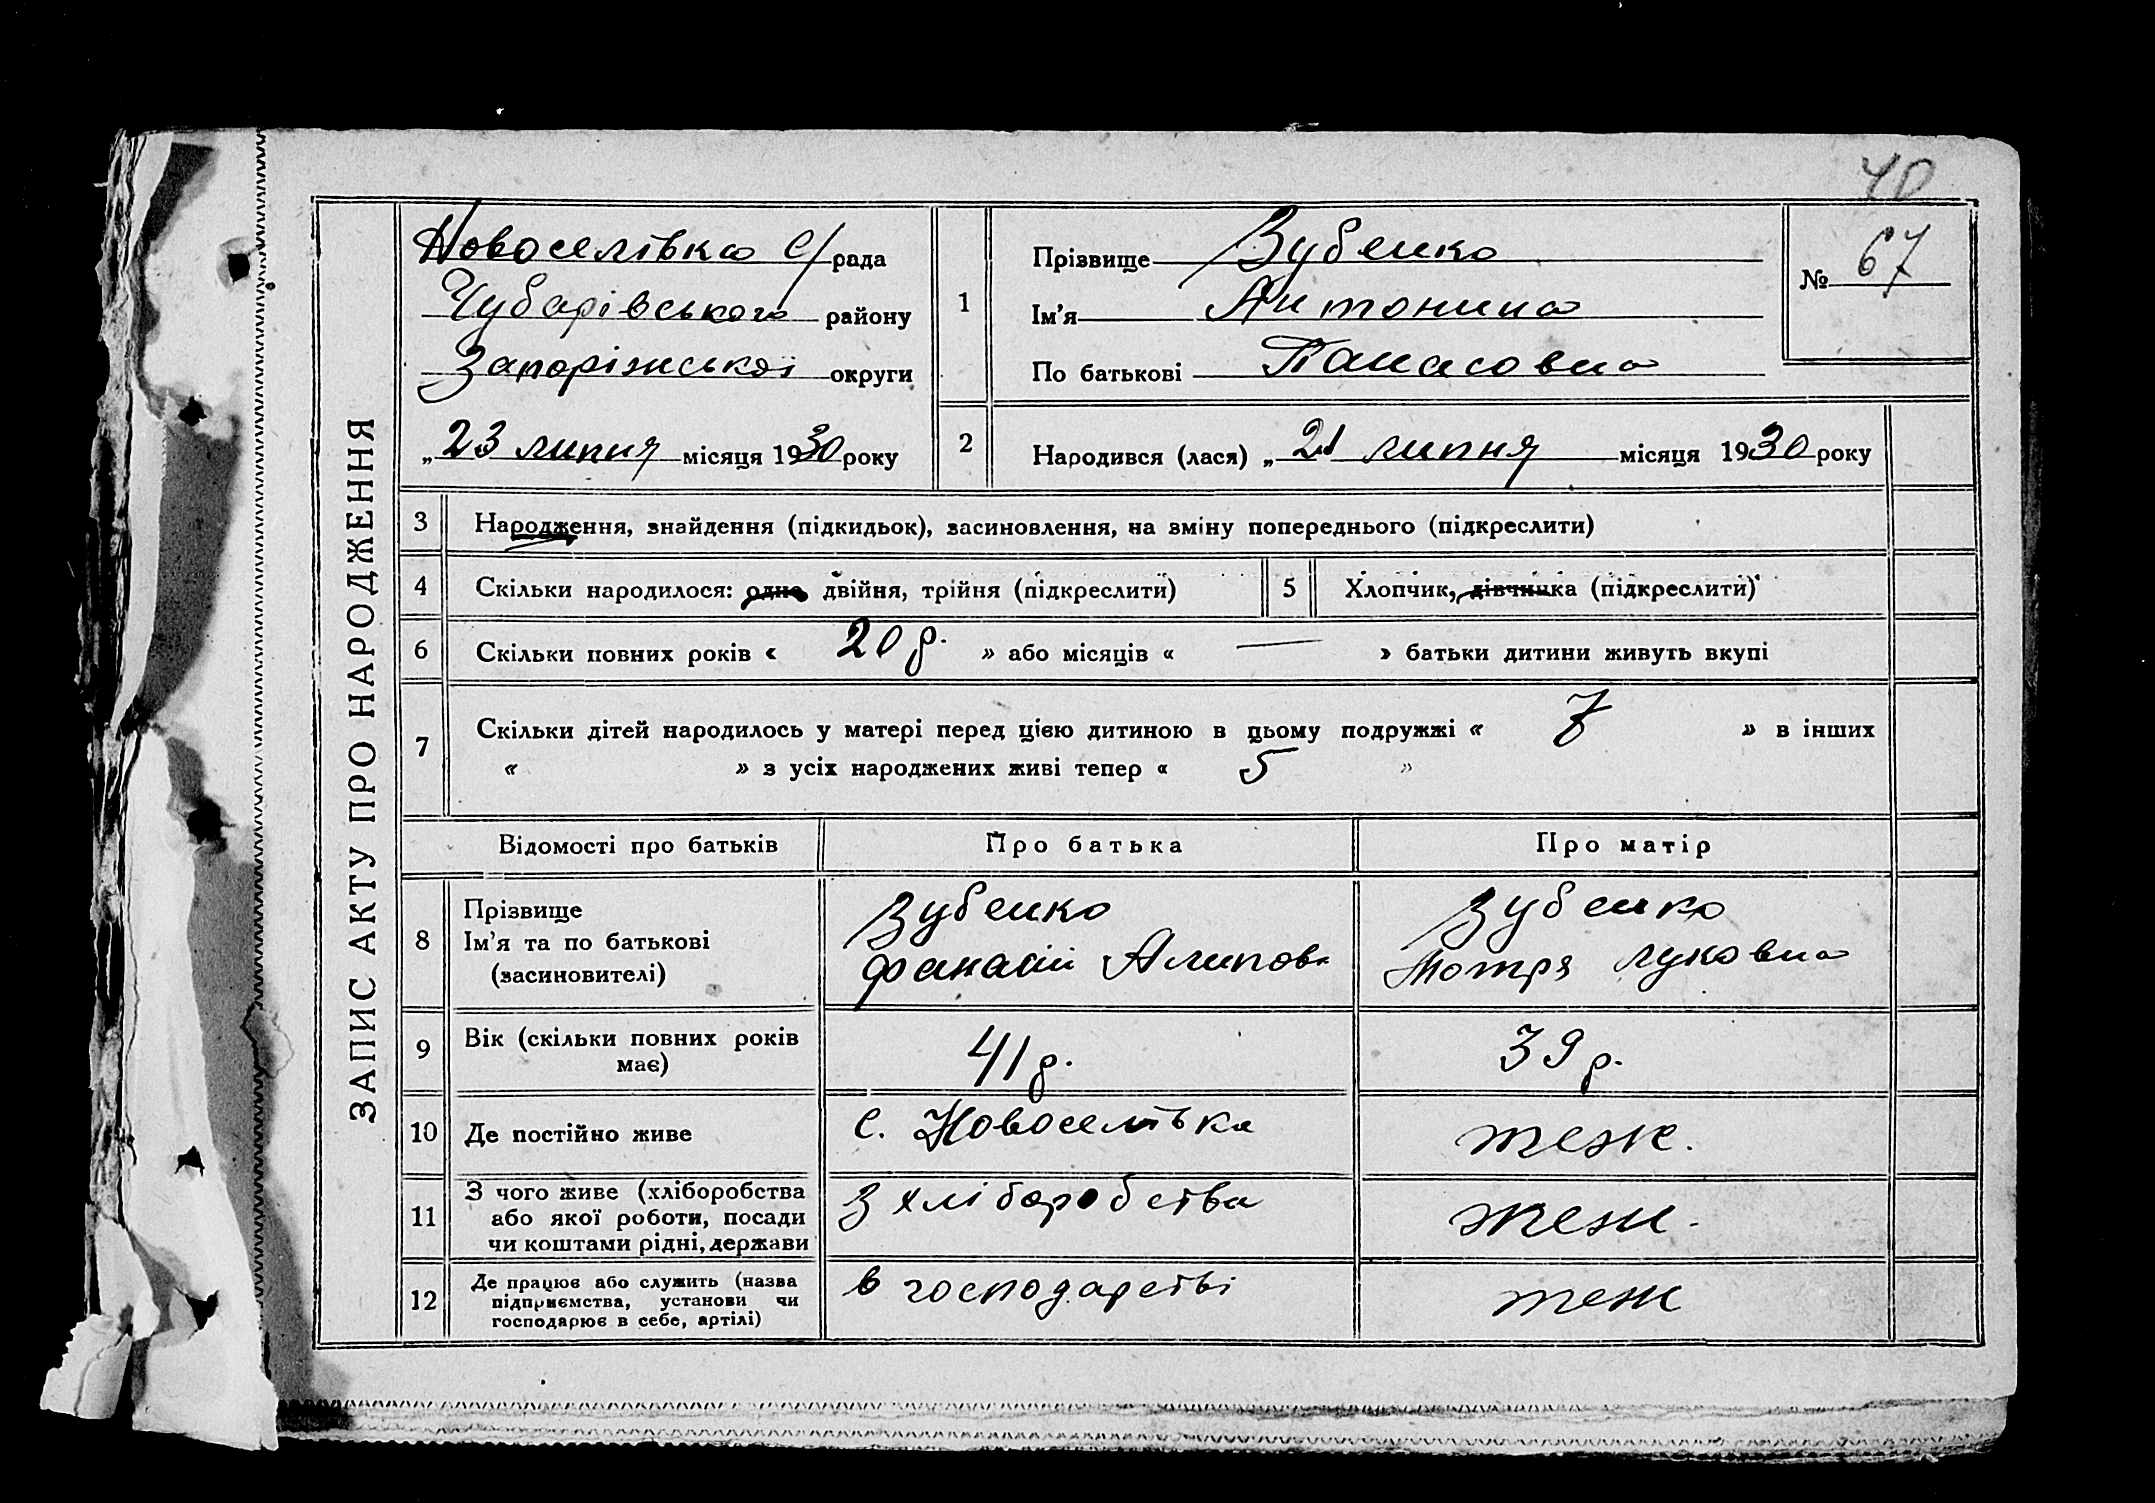 40
ЗАПИС АКТУ ПРО НАРОДЖЕННЯ
Новоселівка С/рада
Чубарівського району
Запоріжської округи
„23 липня місяця 1930 року
1
Прізвище Зубенко
Ім'я Антонина
По батькові Панасовна
№ 67
2
Народився (лася) „21 липня місяця 1930 року
3 Народження, знайдення (підкидьок), засиновлення, на зміну попереднього (підкреслити)
4 Скільки народилося: одно, двійня, трійня (підкреслити)
5 Хлопчик, дівчинка (підкреслити)
6 Скільки повних років « 20 р. » або місяців « — » батьки дитини живуть вкупі
7 Скільки дітей народилось у матері перед цією дитиною в цьому подружжі « 7 » в інших
« » з усіх народжених живі тепер « 5 »
Відомості про батьків Про батька Про матір
8 Прізвище
Ім'я та по батькові
(засиновителі)
Зубенко
Фанасій Алипов.
Зубенко
Мотря Луковна
9 Вік (скільки повних років
має)
41 р.
39 р.
10 Де постійно живе
с. Новоселівка
теж.
11 З чого живе (хліборобства
або якої роботи, посади
чи коштами рідні, держави
З хліборобства
теж.
12 Де працює або служить (назва
підприємства, установи чи
господарює в себе, артілі)
в господарстві
теж